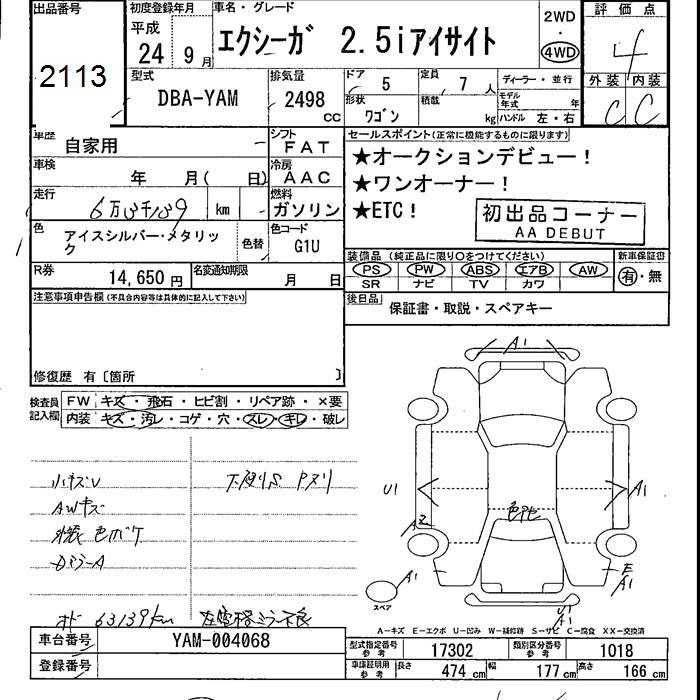 出品番号
2113
初度登録年月
平成
24 9月
車名・グレード
エクシーガ 2.5iアイサイト
2WD
・
4WD
評価点
4
外装 内装
C C
型式
DBA-YAM
排気量
2498 CC
ドア 5
形状 ワゴン
定員 7 人
積載 kg
ディーラー・並行
モデル年式 年
ハンドル 左・右
車歴 自家用
シフト FAT
車検 年 月( 日)
冷房 AAC
走行 6万3千139 km
燃料 ガソリン
色 アイスシルバー・メタリック
色替
色コード G1U
R券 14,650 円
名変通知期限 月 日
セールスポイント(正常に機能するものに限ります)
★オークションデビュー!
★ワンオーナー!
★ETC!
初出品コーナー
AA DEBUT
装備品(純正品に限り○をつけてください)
PS PW ABS エアB AW
SR ナビ TV カワ
新車保証書
有・無
後日品 保証書・取説・スペアキー
注意事項申告欄(不具合内容等は具体的に記入して下さい)
修復歴 有〔箇所 〕
検査員記入欄
FW キズ・飛石・ヒビ割・リペア跡・×要
内装 キズ・汚レ・コゲ・穴・スレ・キレ・破レ
小キズU
AWキズ
下廻りS Pヌリ
色ボケ
オド 63139km
A1
U1
A1
A2
色アセ
E
A1
A1
スペア
U1
A1
A-キズ E-エクボ U-凹み W-補修跡 S-サビ C-腐食 XX-交換済
車台番号 YAM-004068
登録番号
型式指定番号 参考 17302
類別区分番号 参考 1018
車庫証明用 参考
長さ 474 cm
幅 177 cm
高さ 166 cm